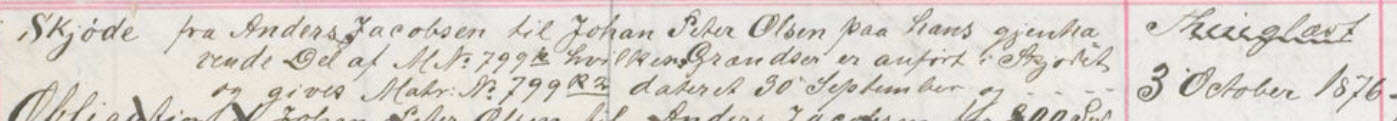 Skjöde fra Anders Jacobsen til Johan Peter Olsen paa hans gjenha
vende Del af M.No. 799k hvilkens Grændser er anfört i Skjödet
og gives Matr: No. 799k2 dateret 30 September og - - - -
Thinglæst
3 October 1876-
Obligation Johan Peter Olsen til Anders Jacobsen for 800